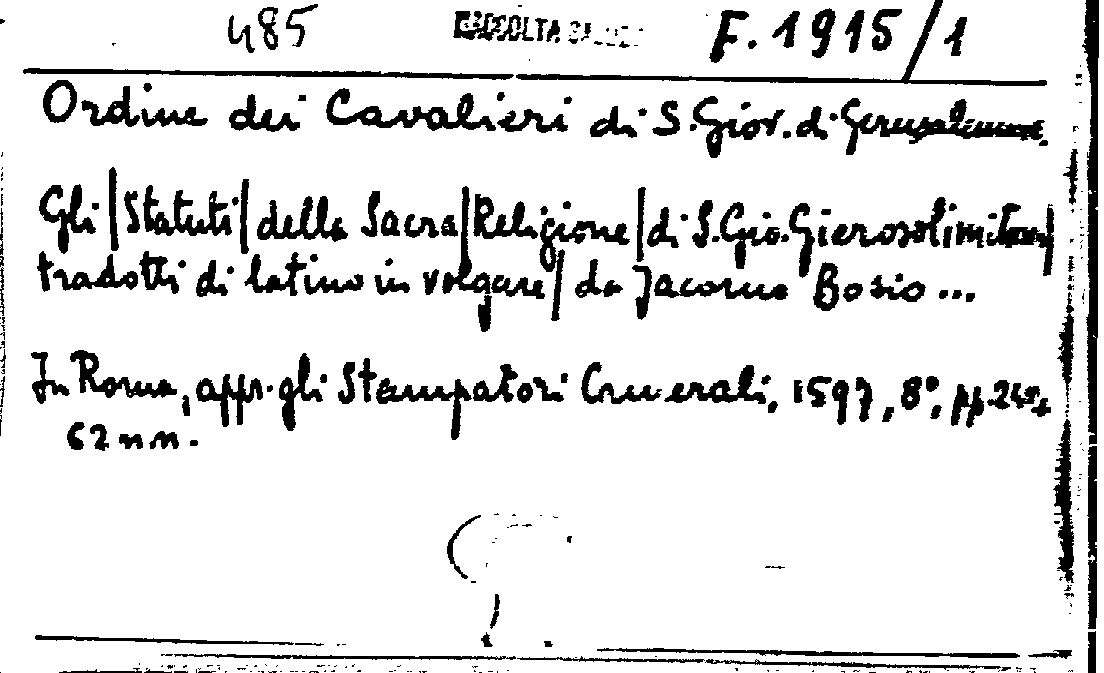 485 RACCOLTA F. 1915/1
Ordine dei Cavalieri di S. Giov. di Gerusalemme.
Gli | Statuti | della Sacra | Religione | di S. Gio. Gierosolimitana |
tradotti di latino in volgare | da Jacomo Bosio ...
In Roma, appr. gli Stampatori Camerali, 1597, 8°, pp.
62 n.n.